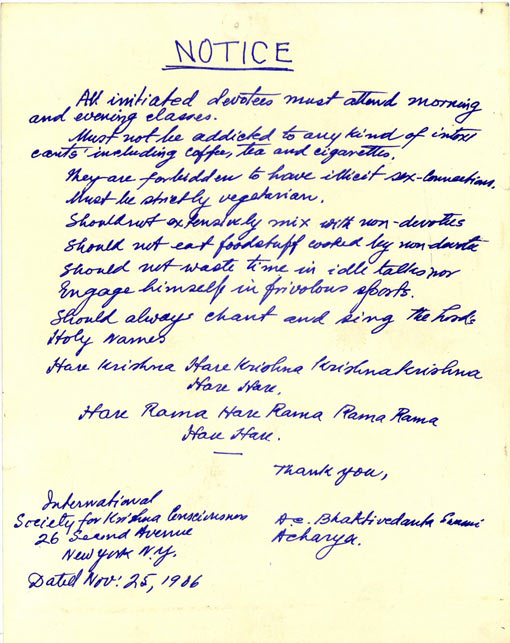 NOTICE
All initiated devotees must attend morning
and evening classes.
Must not be addicted to any kind of intoxi
cants, including coffee, tea and cigarettes.
They are forbidden to have illicit sex-connections.
Must be strictly vegetarian.
Should not extensively mix with non-devotees
Should not eat foodstuff cooked by non-devotee
Should not waste time in idle talks nor
Engage himself in frivolous sports.
Should always chant and sing the Lord's
Holy Names
Hare Krishna Hare Krishna Krishna Krishna
Hare Hare.
Hare Rama Hare Rama Rama Rama
Hare Hare.
Thank you,
International
Society for Krishna Consciousness
26 Second Avenue
New York N.Y.
Dated Nov: 25, 1966
A.C. Bhaktivedanta Swami
Acharya.